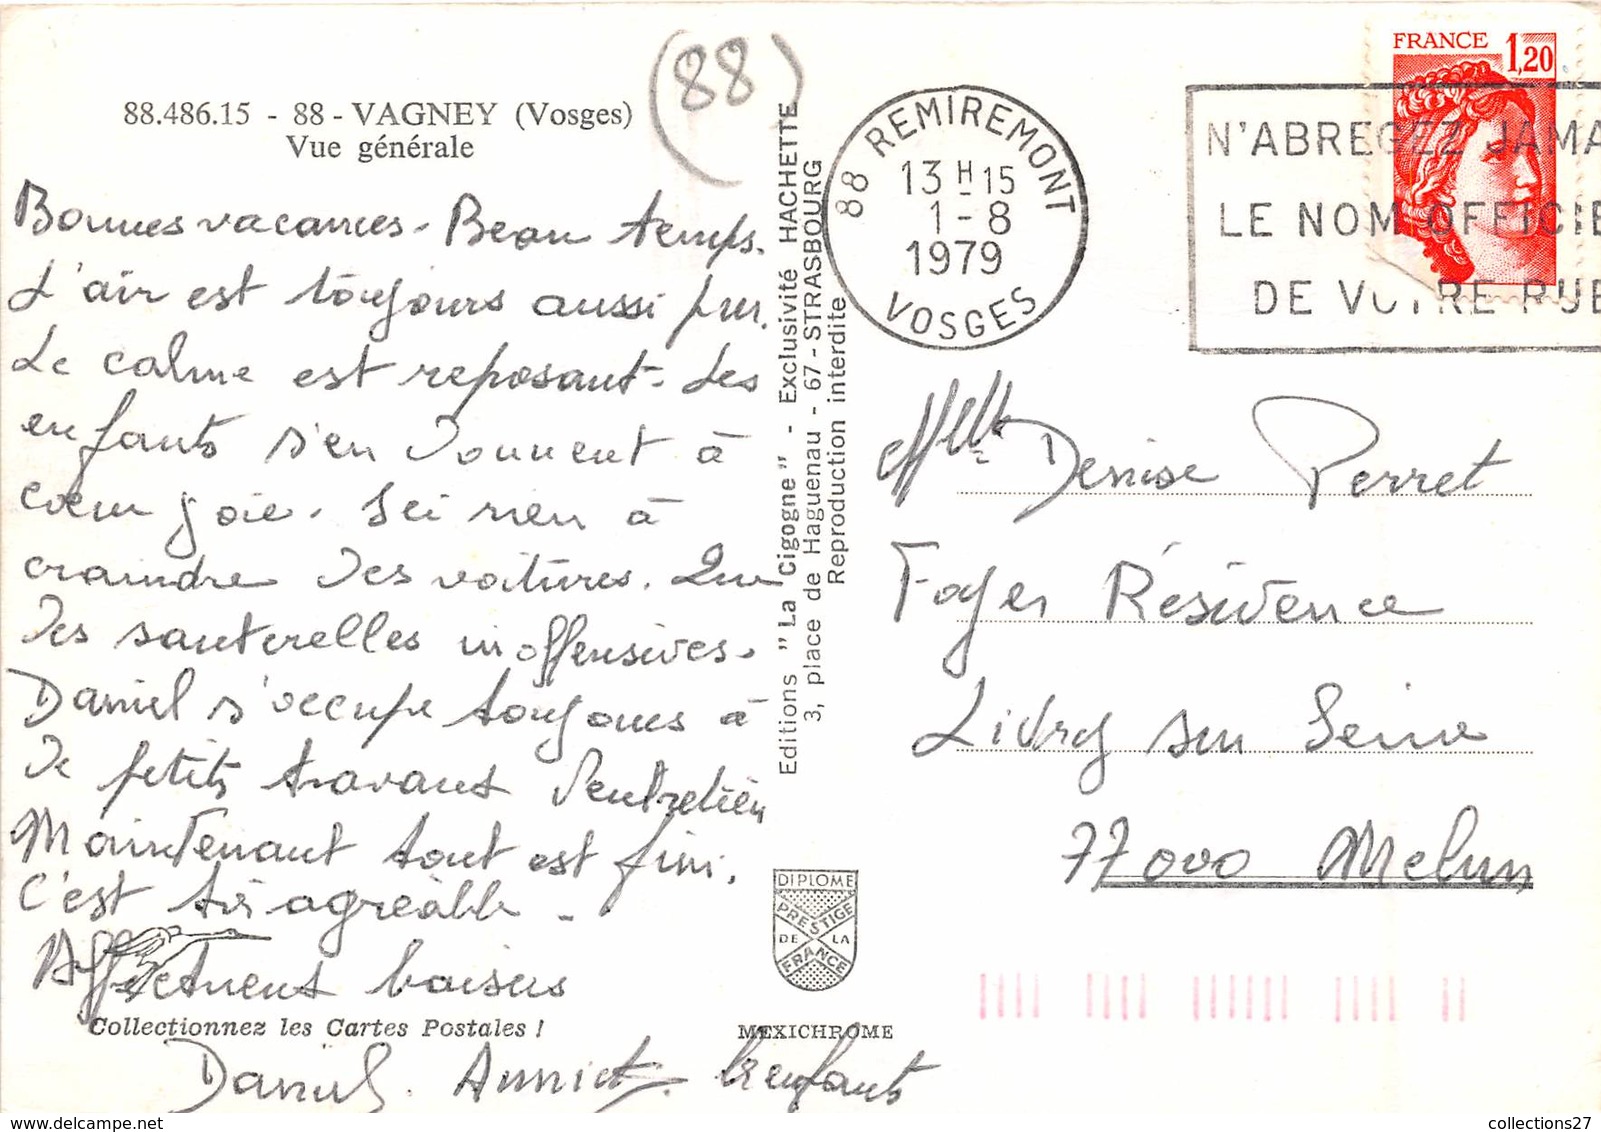 88.486.15 - 88 - VAGNEY (Vosges)
Vue générale
(88)
Bonnes vacances - Beau temps.
L'air est toujours aussi pur.
Le calme est reposant. Les
enfants s'en donnent à
cœur joie. Ici rien à
craindre des voitures. Que
des sauterelles inoffensives.
Daniel s'occupe toujours à
de petits travaux d'entretien
Maintenant tout est fini.
C'est très agréable -
Affectueux baisers
Collectionnez les Cartes Postales !
Daniel. Annick. les enfants
Editions "La Cigogne" - Exclusivité HACHETTE
3, place de Haguenau - 67 - STRASBOURG
Reproduction interdite
DIPLOME
PRESTIGE
DE LA
FRANCE
MEXICHROME
88 REMIREMONT
13 H 15
1-8
1979
VOSGES
FRANCE 1,20
N'ABREGEZ JAMA
LE NOM OFFICIE
DE VOTRE RUE
Melle Denise Perret
Foyer Résidence
Livry sur Seine
77000 Melun
collections27